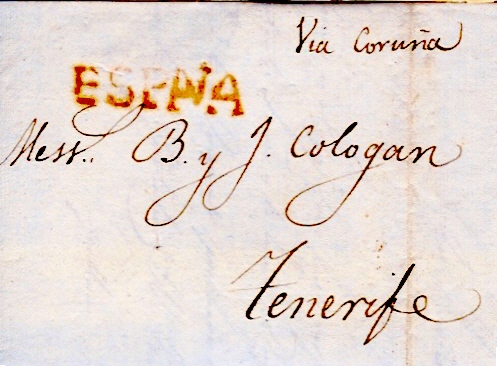 Via Coruña
ESPAÑA
Mess.. B. y J. Cologan
Tenerife